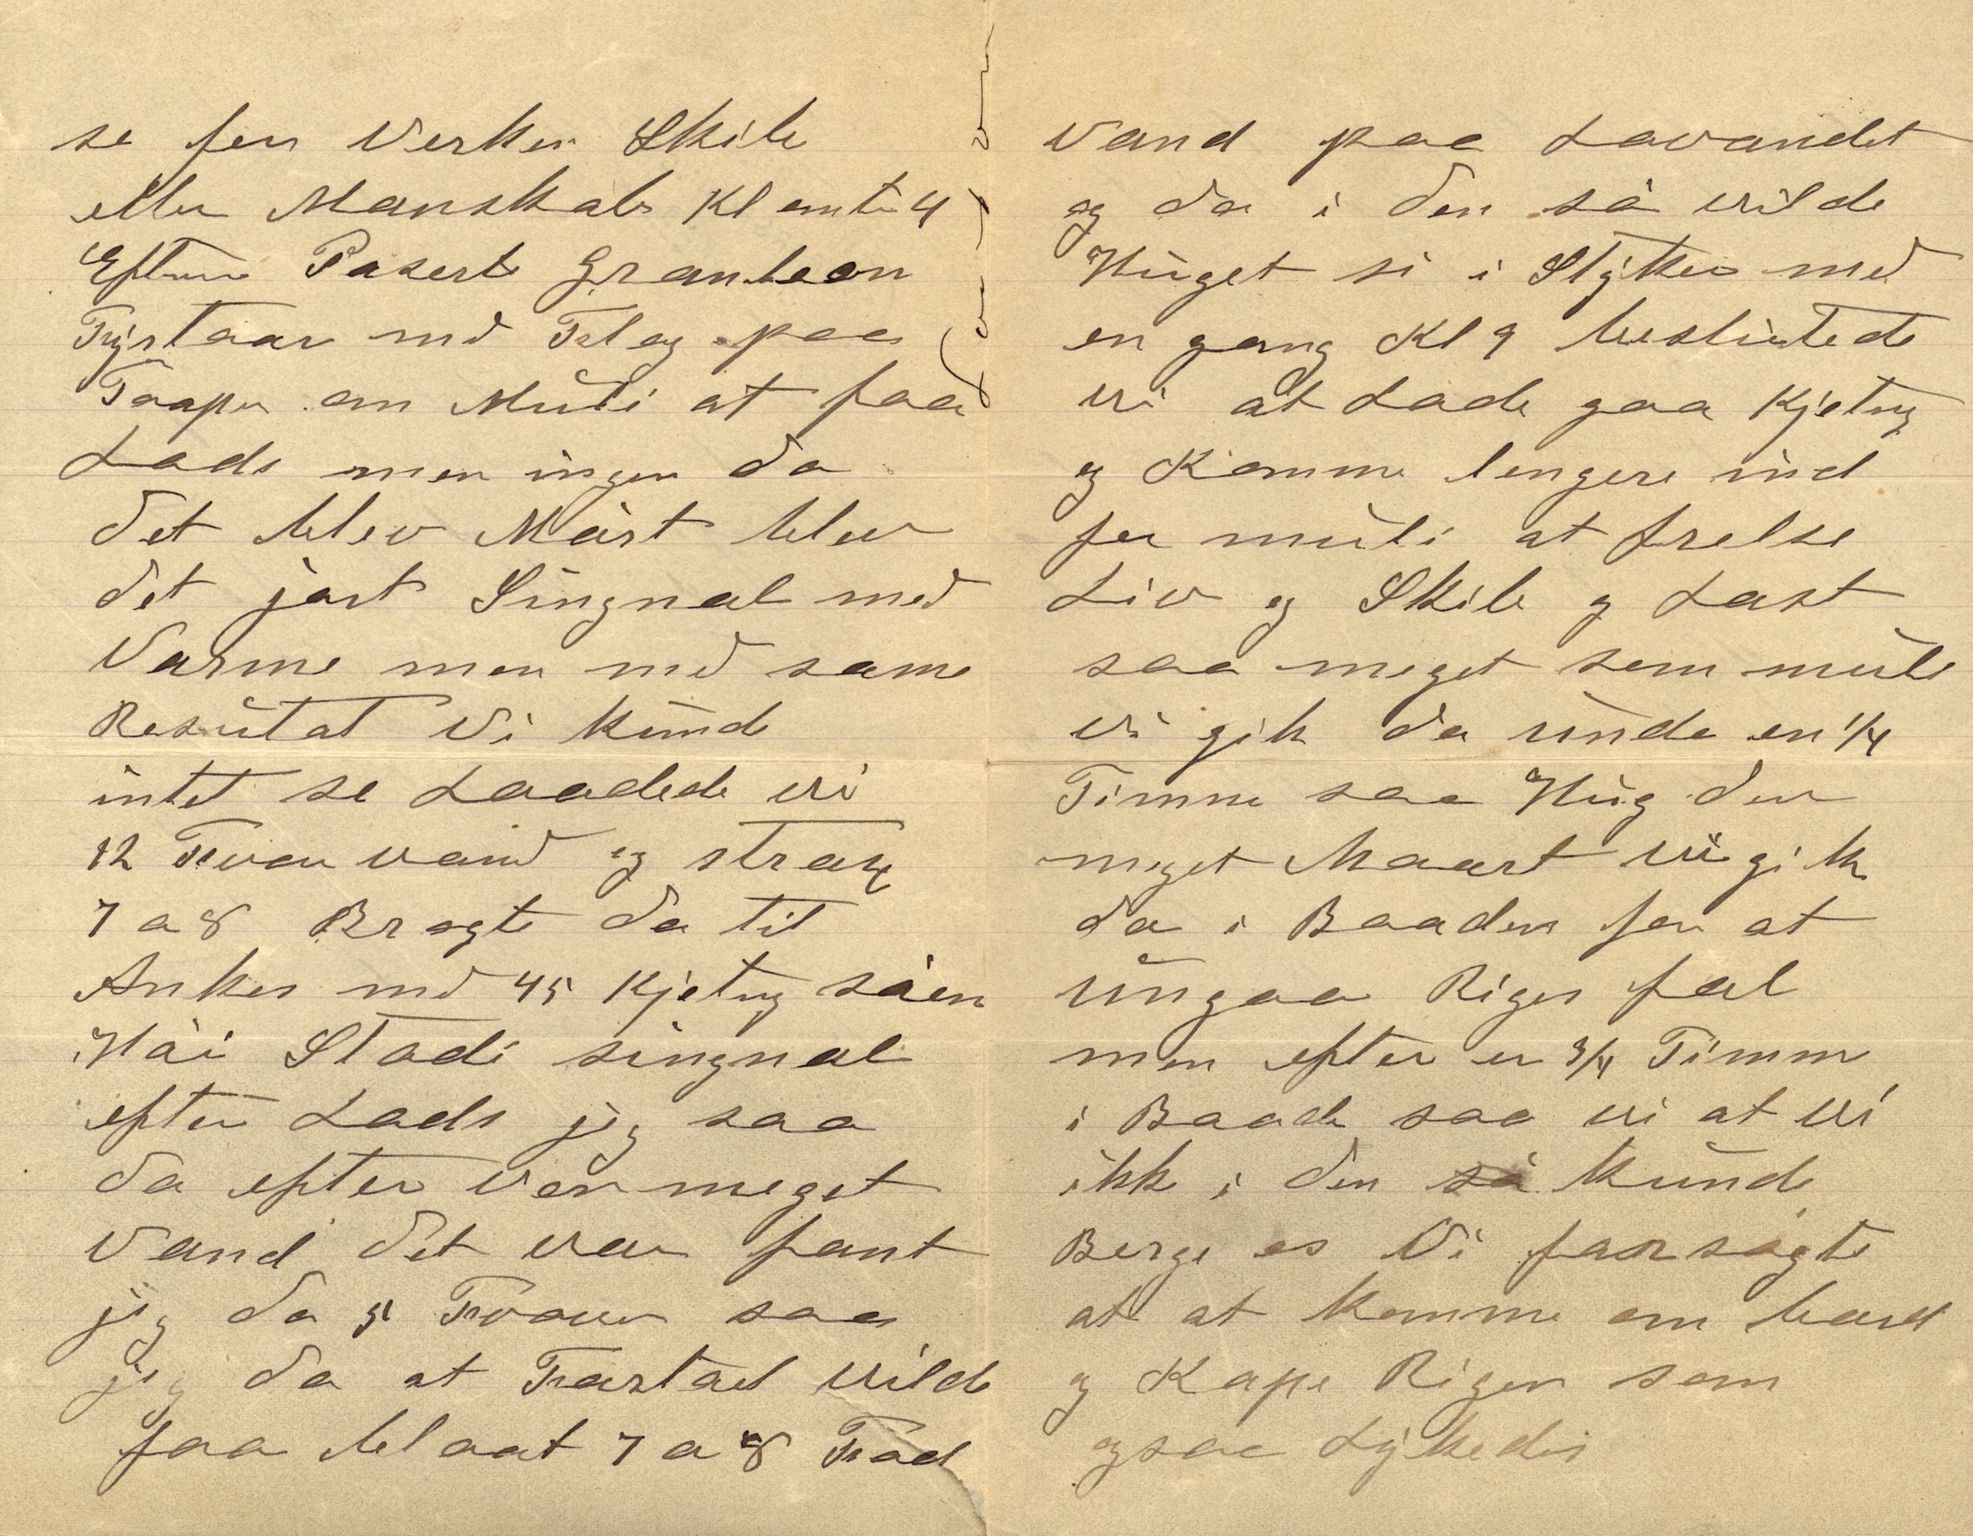 se fer Verken Skib
eller Manskab Kl omtr 4
Eftm Paserte Granton
Fyrtaar med Flag paa
Toppen om Muli at faa
Lods men ingen da
det blev Mørt blev
det jort Singnal med
Varme men med same
Resutat Vi kunde
intet se Loadede vi
12 Favn vand og strax
7 a 8 Bragte da til
Anker med 45 Kjetng så en
Høi Stadi singnal
efter Lods jeg saa
da efter vor meget
Vand det var fant
jeg da 5 Favner saa
jeg da at Fartøiet vilde
faa blaat 7 a 8 Fod
Vand paa Lavandet
og da i den sø vilde
Hüget si i Stÿker med
en gang Kl 9 beslutede
vi at Lade gaa Kjetng
og Komme lengere ind
for muli at frelse
Liv og Skib og Last
saa meget som muli
vi gik da unda en 1/4
Timme saa Hüg den
meget Haart vi gik
da i Baaden for at
üngaa Rigen fal
men efter en 3/4 Timme
i Baade saa vi at vi
ikke i den sø kunde
Berge os Vi forsøgte
at at komme om bord
og Kape Rigen som
ogsaa Lÿkedis